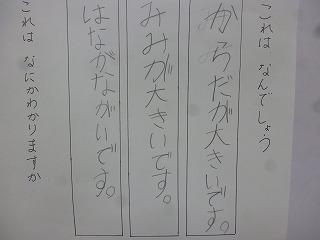 これは なんでしょう
からだが大きいです。
みみが大きいです。
はながながいです。
これは なにかわかりますか